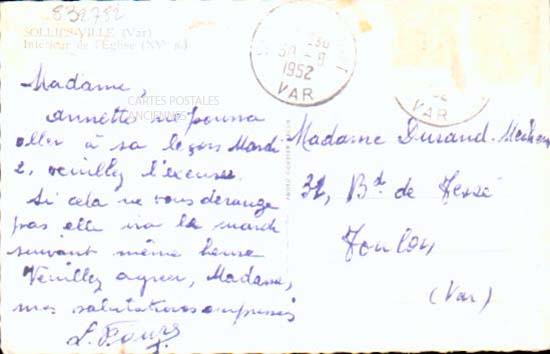 832752
SOLLIÈS-VILLE (Var)
Intérieur de l'Église (XVe s.)
1952
VAR
VAR
CARTES POSTALES
ANCIENNES
Madame,
Annette ne pourra
aller à sa leçon Mardi
2, veuillez l'excuser.
Si cela ne vous dérange
pas elle ira le mardi
suivant même heure
Veuillez agréer, Madame,
mes salutations empressées
Madame Durand-
32, Bd. de Tessé
Toulon
(Var)